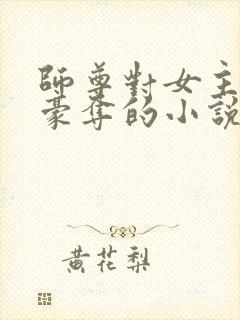 師尊對女主
豪奪的小說
黃花梨